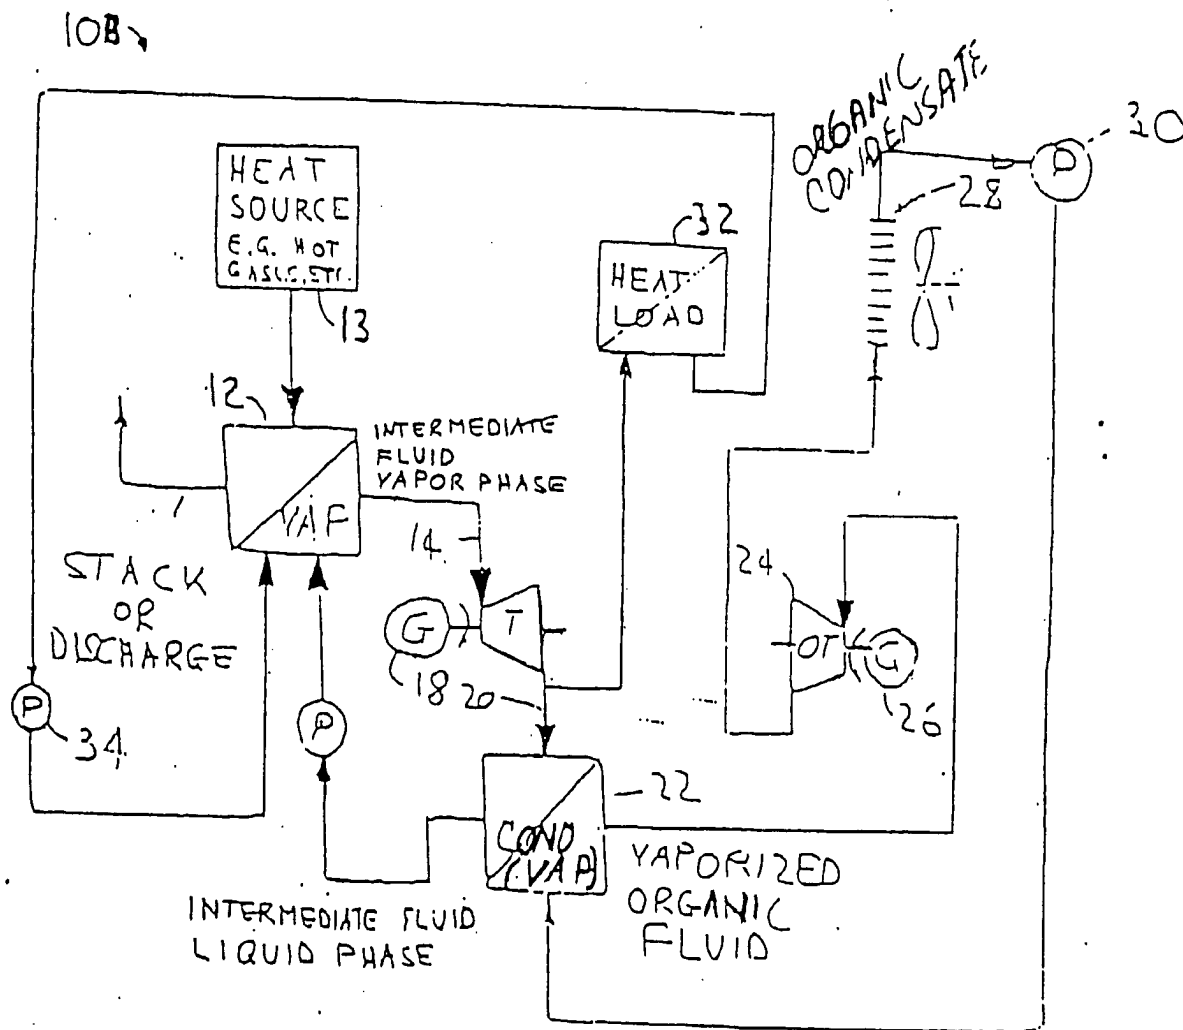 10B
ORGANIC
CONDENSATE
30
28
HEAT
SOURCE
E.G. HOT
GASES, ETC.
13
32
HEAT
LOAD
12
INTERMEDIATE
FLUID
VAPOR PHASE
VAP
14
24
STACK
OR
DISCHARGE
G
T
OT
G
18
20
26
P
34
P
22
COND
(VAP)
VAPORIZED
ORGANIC
FLUID
INTERMEDIATE FLUID
LIQUID PHASE